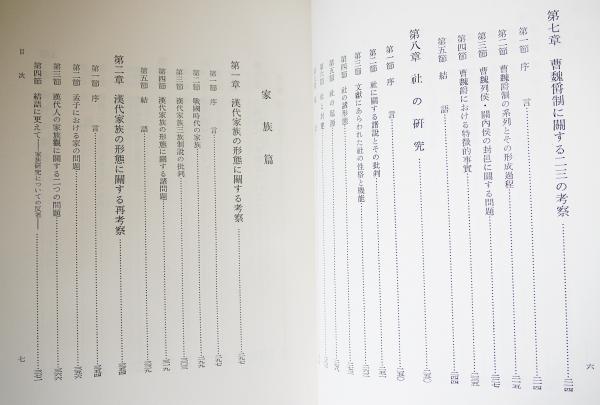 第七章 曹魏爵制に關する二三の考察…………二一四
第一節 序言…………二一四
第二節 曹魏爵制の系列とその形成過程…………二一五
第三節 曹魏列侯・關內侯の封邑に關する問題…………二二七
第四節 曹魏爵における特徴的事實…………二三五
第五節 結語…………二四四
第八章 社の研究…………二五〇
第一節 序言…………二五〇
第二節 社に關する諸説とその批判…………二五一
第三節 文獻にあらわれた社の性格と機能
第四節 社の諸形態
第五節 社の起源
六
家族篇
第一章 漢代家族の形態に關する考察…………二九七
第一節 序言…………二九七
第二節 戰國時代の家族…………二九九
第三節 漢代家族三族制説の批判…………三〇三
第四節 漢代家族の形態に關する諸問題…………三一九
第五節 結語
第二章 漢代家族の形態に關する再考察…………三四四
第一節 序言…………三四四
第二節 孟子における家の問題
第三節 漢代人の家族觀に關する二つの問題
第四節 結語に更えて——家族研究についての反省——
目次
七